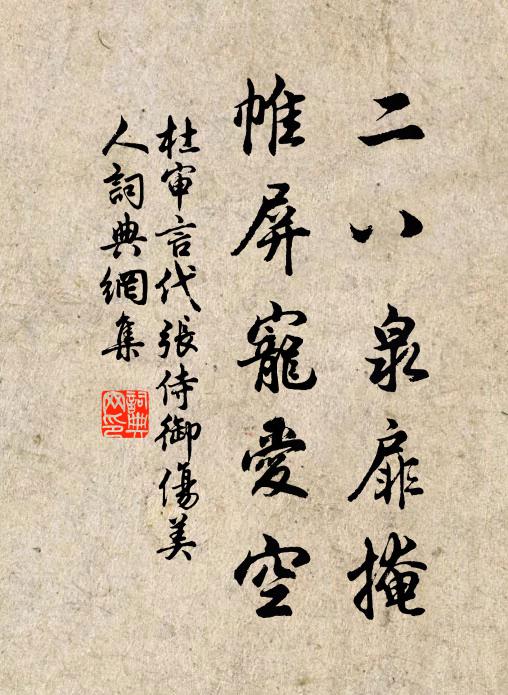 二八泉扉掩
帷屏寵愛空
杜審言代張侍御傷美
人詞典網集
詞典
网印